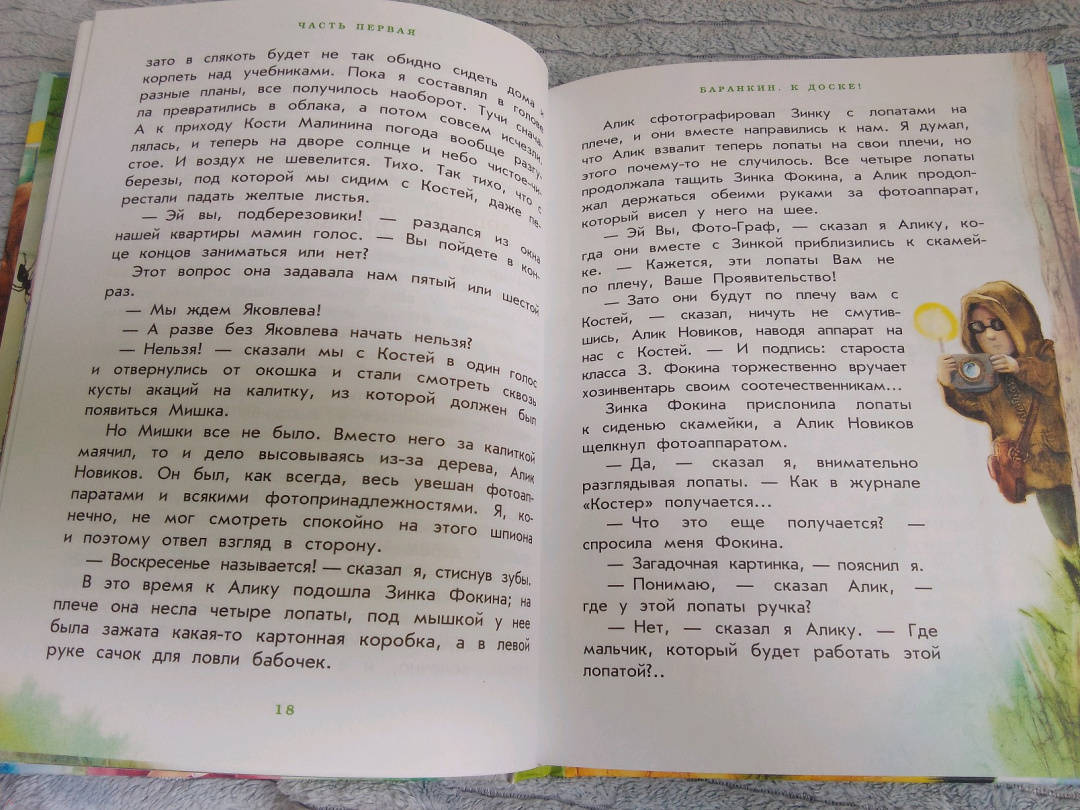 ЧАСТЬ ПЕРВАЯ
зато в слякоть будет не так обидно сидеть дома и
корпеть над учебниками. Пока я составлял в голове
разные планы, все получилось наоборот. Тучи снача-
ла превратились в облака, а потом совсем исчезли.
А к приходу Кости Малинина погода вообще разгу-
лялась, и теперь на дворе солнце и небо чистое-чи-
стое. И воздух не шевелится. Тихо. Так тихо, что с
березы, под которой мы сидим с Костей, даже пе-
рестали падать желтые листья.
— Эй вы, подберезовики! — раздался из окна
нашей квартиры мамин голос. — Вы пойдете в кон-
це концов заниматься или нет?
Этот вопрос она задавала нам пятый или шестой
раз.
— Мы ждем Яковлева!
— А разве без Яковлева начать нельзя?
— Нельзя! — сказали мы с Костей в один голос
и отвернулись от окошка и стали смотреть сквозь
кусты акаций на калитку, из которой должен был
появиться Мишка.
Но Мишки все не было. Вместо него за калиткой
маячил, то и дело высовываясь из-за дерева, Алик
Новиков. Он был, как всегда, весь увешан фотоап-
паратами и всякими фотопринадлежностями. Я, ко-
нечно, не мог смотреть спокойно на этого шпиона
и поэтому отвел взгляд в сторону.
— Воскресенье называется! — сказал я, стиснув зубы.
В это время к Алику подошла Зинка Фокина; на
плече она несла четыре лопаты, под мышкой у нее
была зажата какая-то картонная коробка, а в левой
руке сачок для ловли бабочек.
18
БАРАНКИН, К ДОСКЕ!
Алик сфотографировал Зинку с лопатами на
плече, и они вместе направились к нам. Я думал,
что Алик взвалит теперь лопаты на свои плечи, но
этого почему-то не случилось. Все четыре лопаты
продолжала тащить Зинка Фокина, а Алик продол-
жал держаться обеими руками за фотоаппарат,
который висел у него на шее.
— Эй Вы, Фото-Граф, — сказал я Алику, ко-
гда они вместе с Зинкой приблизились к скамей-
ке. — Кажется, эти лопаты Вам не
по плечу, Ваше Проявительство!
— Зато они будут по плечу вам с
Костей, — сказал, ничуть не смутив-
шись, Алик Новиков, наводя аппарат на
нас с Костей. — И подпись: староста
класса З. Фокина торжественно вручает
хозинвентарь своим соотечественникам...
Зинка Фокина прислонила лопаты
к сиденью скамейки, а Алик Новиков
щелкнул фотоаппаратом.
— Да, — сказал я, внимательно
разглядывая лопаты. — Как в журнале
«Костер» получается...
— Что это еще получается? —
спросила меня Фокина.
— Загадочная картинка, — пояснил я.
— Понимаю, — сказал Алик, —
где у этой лопаты ручка?
— Нет, — сказал я Алику. — Где
мальчик, который будет работать этой
лопатой?..